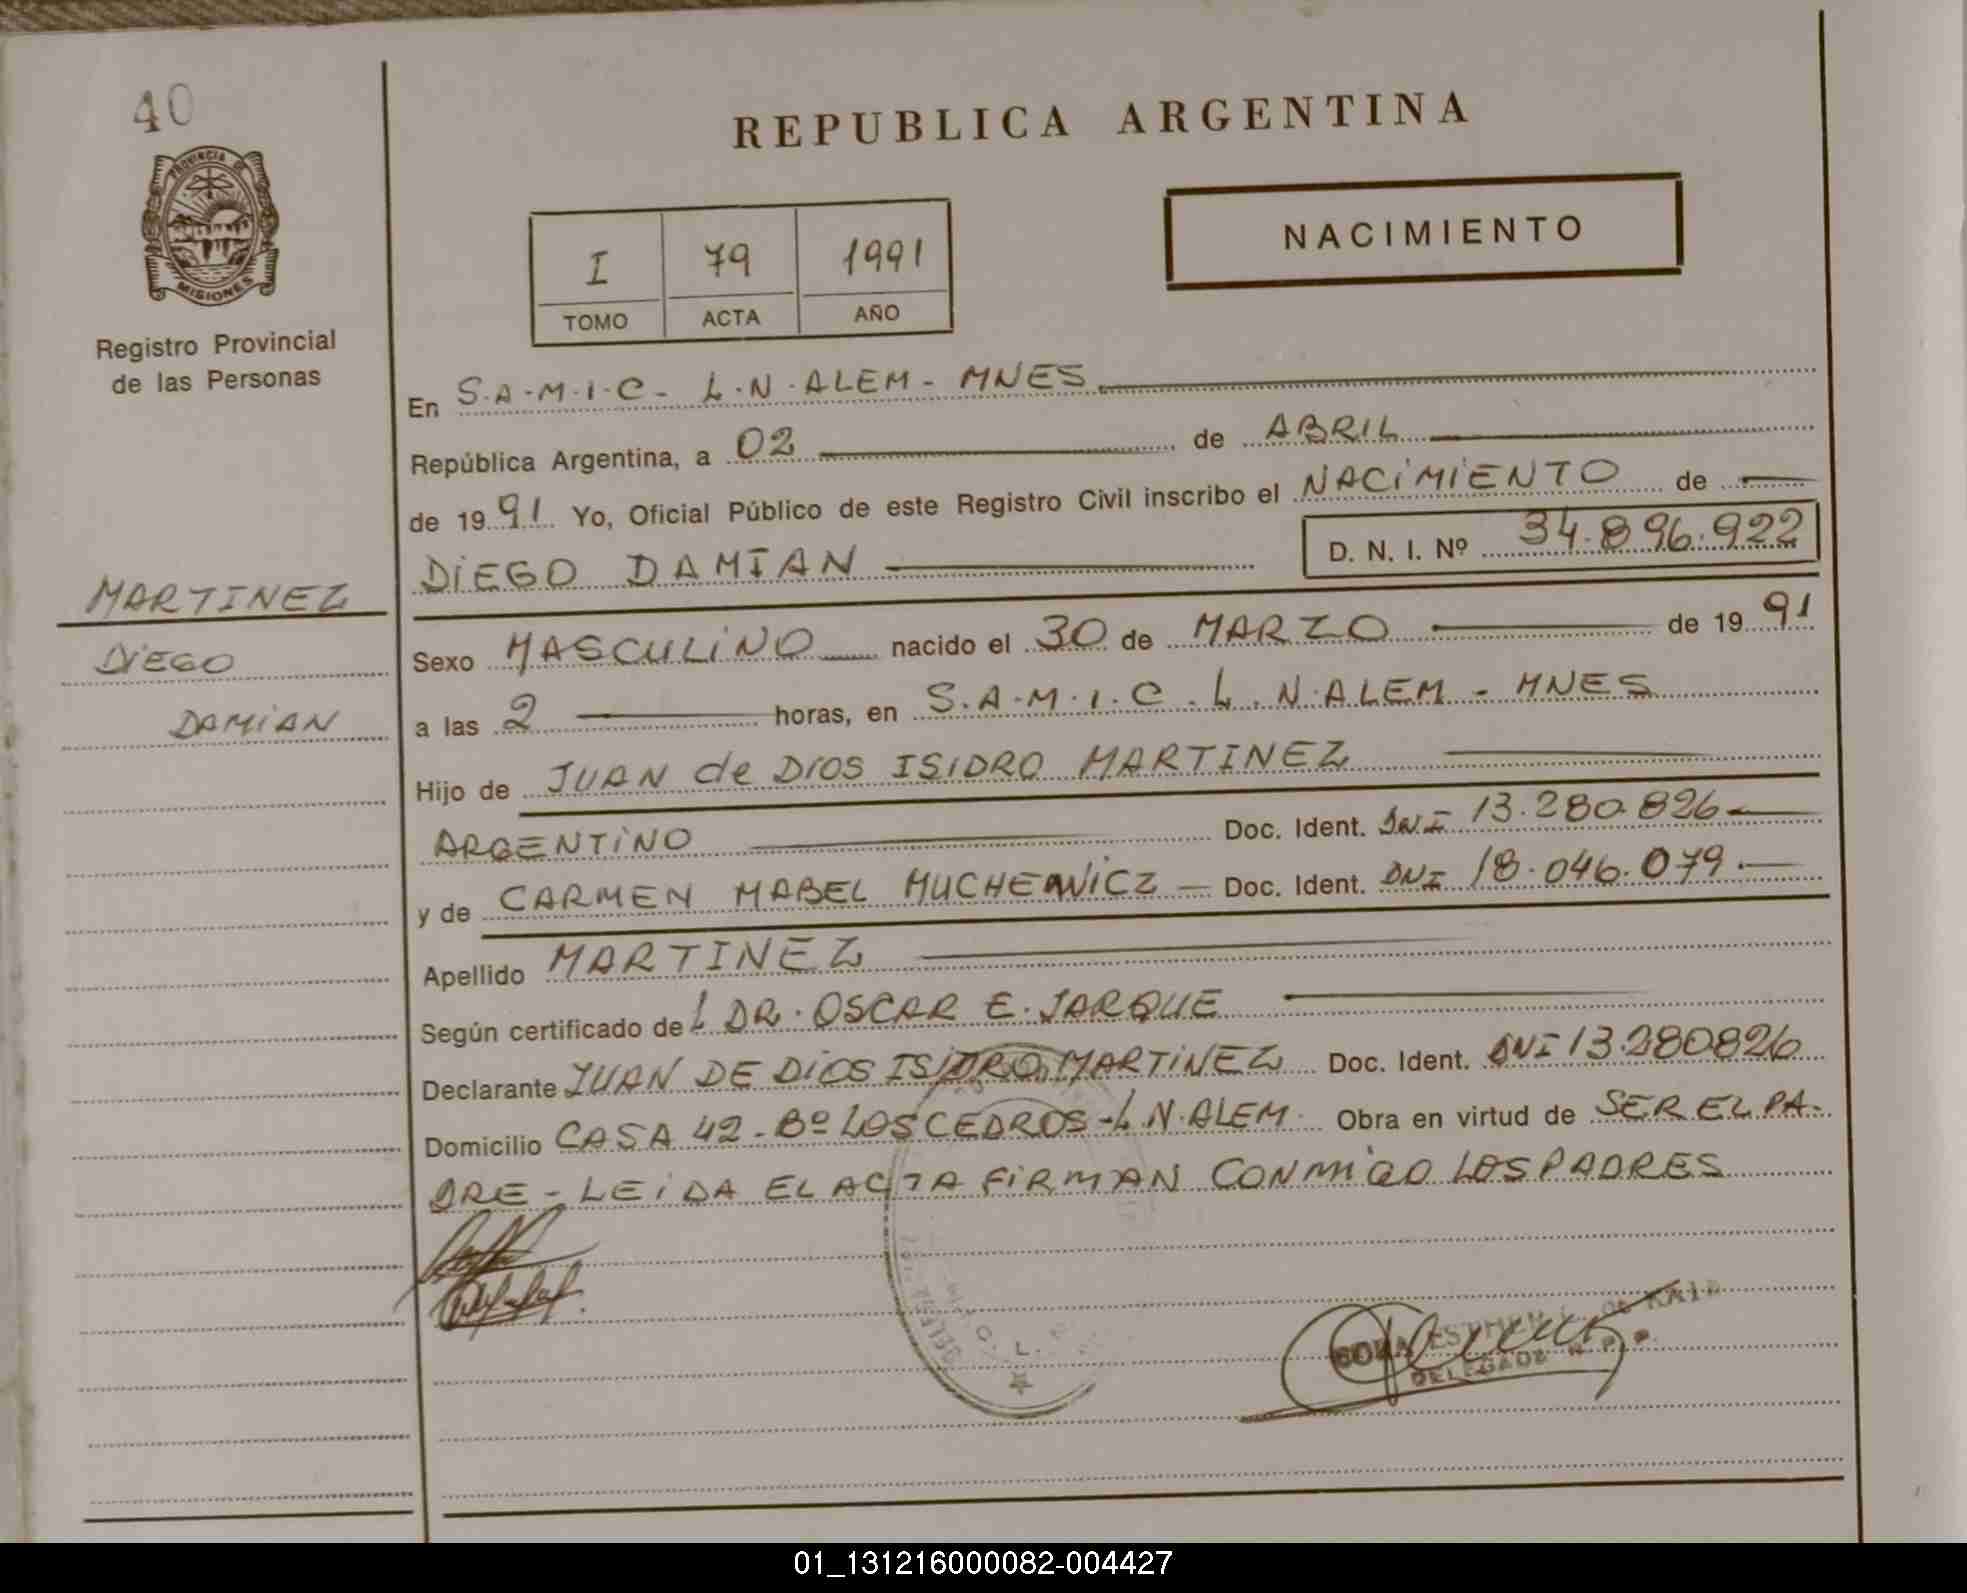 40
PROVINCIA DE
MISIONES
Registro Provincial
de las Personas
MARTINEZ
DIEGO
DAMIAN
REPUBLICA ARGENTINA
I 79 1991
TOMO ACTA AÑO
NACIMIENTO
En S.A.M.I.C. L.N.ALEM - MNES
República Argentina, a 02 de ABRIL
de 1991 Yo, Oficial Público de este Registro Civil inscribo el NACIMIENTO de
DIEGO DAMIAN D. N. I. Nº 34.896.922
Sexo MASCULINO nacido el 30 de MARZO de 1991
a las 2 horas, en S.A.M.I.C. L.N.ALEM - MNES
Hijo de JUAN de DIOS ISIDRO MARTINEZ
ARGENTINO Doc. Ident. DNI 13.280.826
y de CARMEN MABEL MUCHEWICZ Doc. Ident. DNI 18.046.079.
Apellido MARTINEZ
Según certificado del DR. OSCAR E. JARQUE
Declarante JUAN DE DIOS ISIDRO MARTINEZ Doc. Ident. DNI 13.280826
Domicilio CASA 42 - Bº LOS CEDROS - L.N.ALEM. Obra en virtud de SER EL PA-
DRE - LEIDA EL ACTA FIRMAN CONMIGO LOS PADRES
DELEGADA
01_131216000082-004427